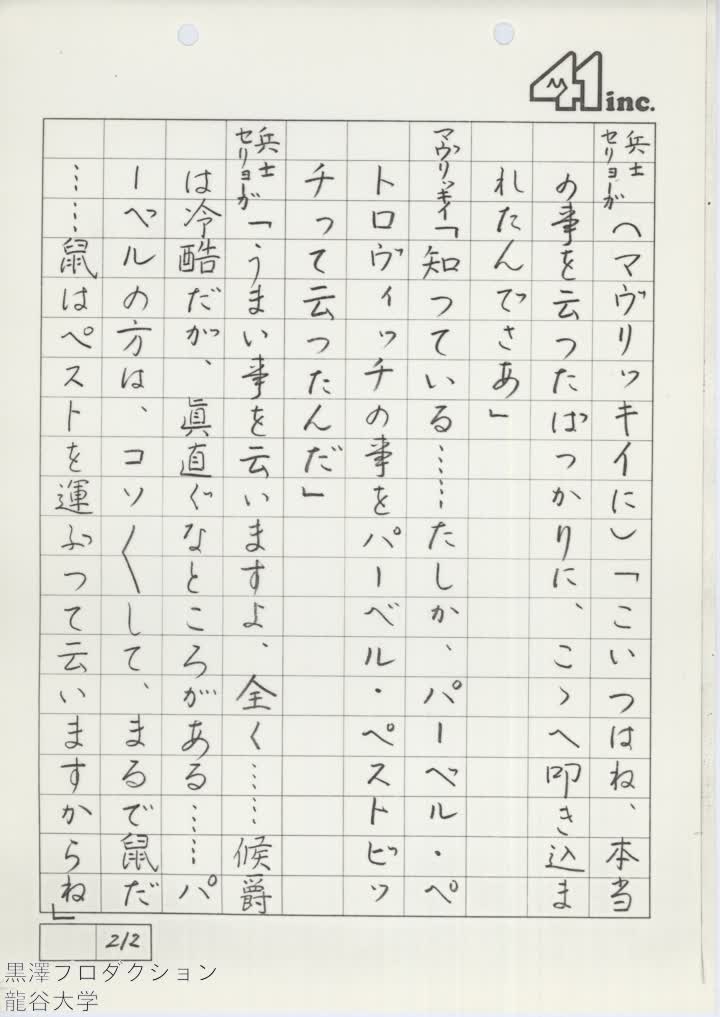 41 inc.
兵士セリョーガ（マヴリッキイに）「こいつはね、本当
の事を云ったばっかりに、こゝへ叩き込ま
れたんでさあ」
マヴリッキイ「知っている……たしか、パーベル・ペ
トロヴィッチの事をパーベル・ペストビッ
チって云ったんだ」
兵士セリョーガ「うまい事を云いますよ、全く……候爵
は冷酷だが、眞直ぐなところがある……パ
ーベルの方は、コソ〱して、まるで鼠だ
……鼠はペストを運ぶって云いますからね」
212
黒澤プロダクション
龍谷大学